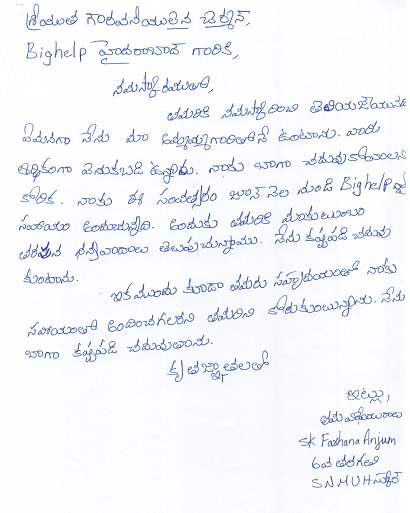 శ్రీయుత గౌరవనీయులైన చైర్మన్,
Bighelp హైదరాబాద్ గారికి,
నమస్కారములతో,
తమరికి నమస్కరించి తెలియజేయునది
ఏమనగా నేను మా అమ్మమ్మగారింటిలోనే ఉంటాను. వారు
ఆర్థికంగా వెనుకబడి ఉన్నారు. నాకు బాగా చదువుకోవాలని
కోరిక. నాకు ఈ సంవత్సరం జూన్ నెల నుండి Bighelp ద్వారా
సహాయం అందుచున్నది. ఇందుకు తమరికి మాకుటుంబం
తరపున ధన్యవాదాలు తెలుపుచున్నాము. నేను కష్టపడి చదువు
కుంటాను.
ఇక ముందు కూడా తమరు సహృదయంతో నాకు
సహాయంతో అందించగలరని తమరిని కోరుకుంటున్నాను. నేను
బాగా కష్టపడి చదువుతాను.
కృతజ్ఞతలతో
ఇట్లు,
తమ విధేయురాలు
SK. Farhana Anjum
6వ తరగతి
S N M U H స్కూల్